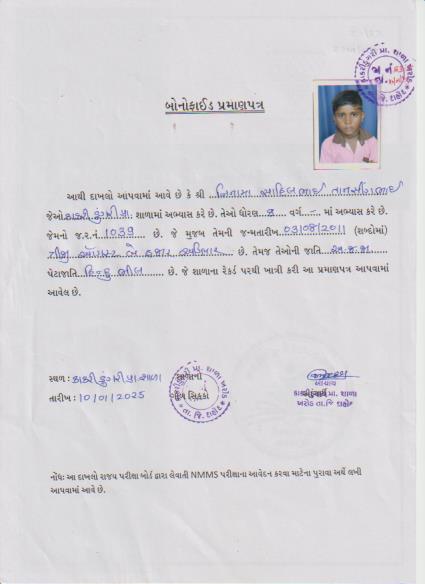 બોનોફાઈડ પ્રમાણપત્ર
આથી દાખલો આપવામાં આવે છે કે શ્રી
જેઓ કાકરી ડુંગરી પ્રા. શાળામાં અભ્યાસ કરે છે. તેઓ ધોરણ 8 વર્ગ - માં અભ્યાસ કરે છે.
જેમનો જ.ર.નં 1039 છે. જે મુજબ તેમની જન્મતારીખ 03/08/2011 (શબ્દોમાં)
ત્રીજી ઓગસ્ટ બે હજાર અગિયાર છે. તેમજ તેઓની જાતિ અ.જ.જા
પેટાજાતિ હિન્દુ ભીલ છે. જે શાળાના રેકર્ડ પરથી ખાત્રી કરી આ પ્રમાણપત્ર આપવામાં
આવેલ છે.
સ્થળ : કાકરી ડુંગરી પ્રા.શાળા
તારીખ : 10/01/2025
શાળાનો
ગોળ સિક્કો
આચાર્ય
કાકરી ડુંગરી પ્રા. શાળા
ખરોડ તા.જિ. દાહોદ
નોંધ: આ દાખલો રાજ્ય પરીક્ષા બોર્ડ દ્વારા લેવાતી NMMS પરીક્ષાના આવેદન કરવા માટેના પુરાવા અર્થે લખી
આપવામાં આવે છે.